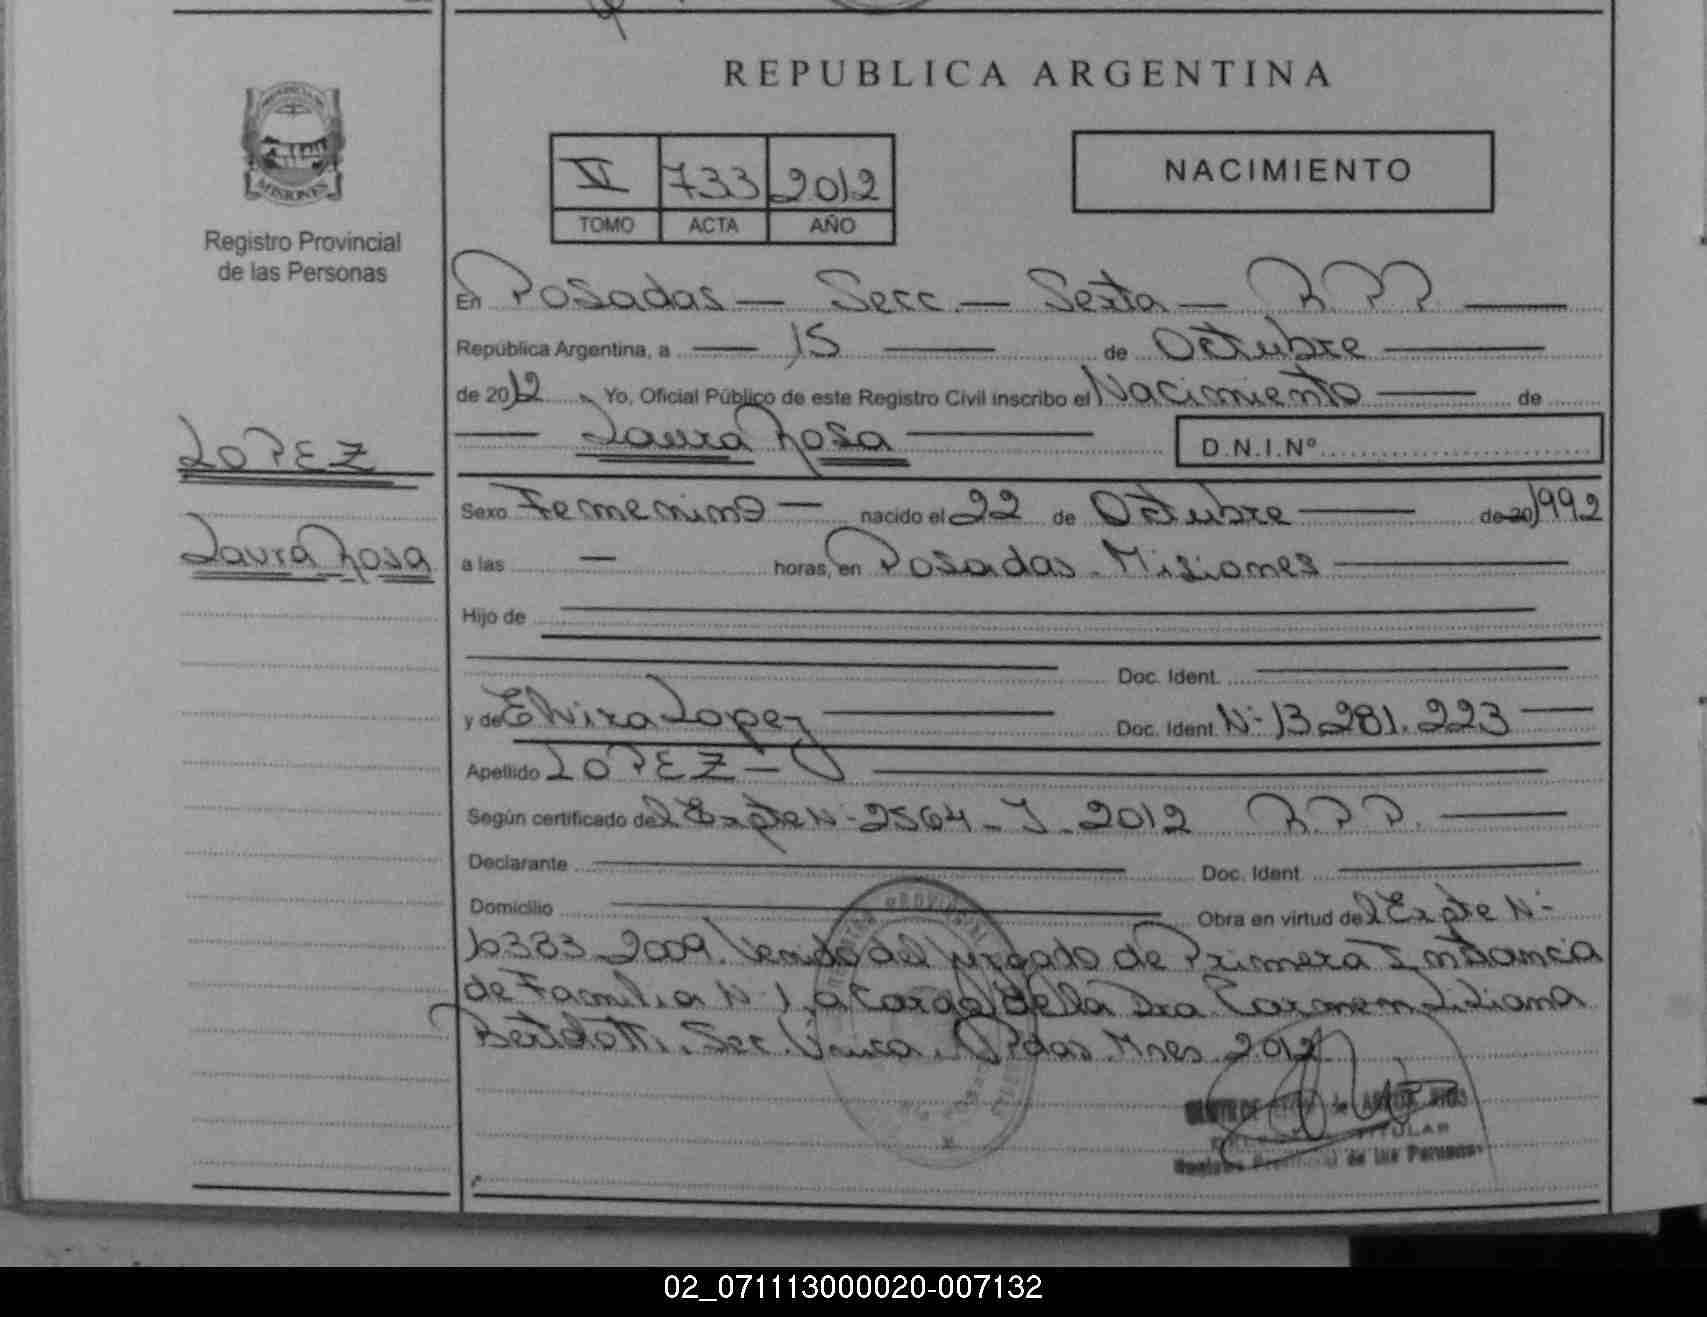 REPUBLICA ARGENTINA
PROVINCIA DE
MISIONES
Registro Provincial
de las Personas
VI 733 2012
TOMO ACTA AÑO
NACIMIENTO
En Posadas — Secc. — Sexta — R.P.P.
República Argentina, a — 15 — de Octubre
de 2012 Yo, Oficial Público de este Registro Civil inscribo el Nacimiento — de
— Laura Rosa —
D.N.I.Nº
LOPEZ
Laura Rosa
Sexo Femenino — nacido el 22 de Octubre — de 20 1992
a las — horas, en Posadas - Misiones
Hijo de
Doc. Ident.
y de Elvira Lopez — Doc. Ident. Nº 13.281.223 —
Apellido LOPEZ —
Según certificado del Expte Nº 2564 - J - 2012 R.P.P. —
Declarante Doc. Ident.
Domicilio Obra en virtud del Expte Nº
10383 - 2009. Venido del Juzgado de Primera Instancia
de Familia Nº 1, a Cargo de la Dra Carmen Liliana
Sec. Unica. Pdas. Mnes. 2012
TITULAR
Registro Provincial de las Personas
02_071113000020-007132